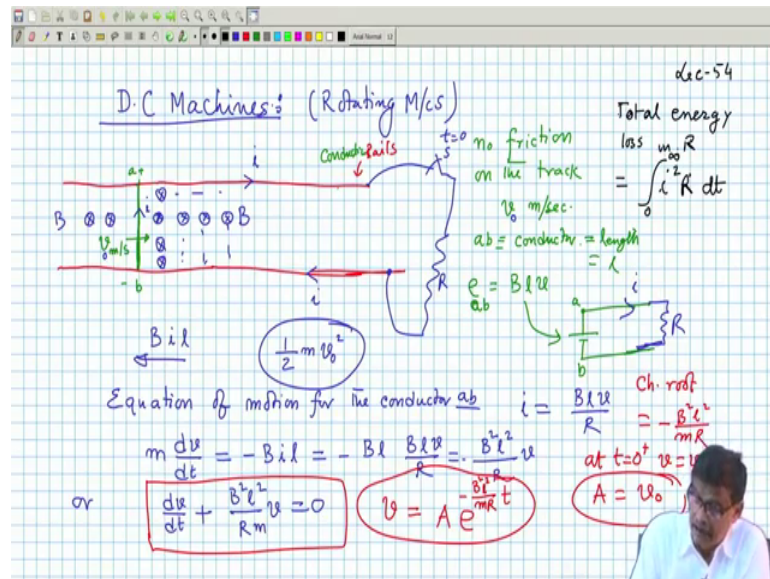 Arial Normal 12
Lec-54
D.C Machines: (Rotating M/cs)
Total energy
loss in R
= ∫₀^∞ i² R dt
Conductor Rails
t=0
S
no friction
on the track
v₀ m/sec.
ab = conductor = length
= l
e_ab = Blv
a+
i
i
B ⊗ ⊗ ⊗ ⊗ ⊗ ⊗ B
v₀ m/s
-b
i
R
a
i
R
b
Bil
½ m v₀²
Equation of motion for the conductor ab
i = Blv/R
Ch. root
= - B²l²/mR
m dv/dt = -Bil = -Bl Blv/R = - B²l²/R v
at t=0⁺ v=v
or
dv/dt + B²l²/Rm v = 0
v = A e^(-B²l²/mR t)
A = v₀